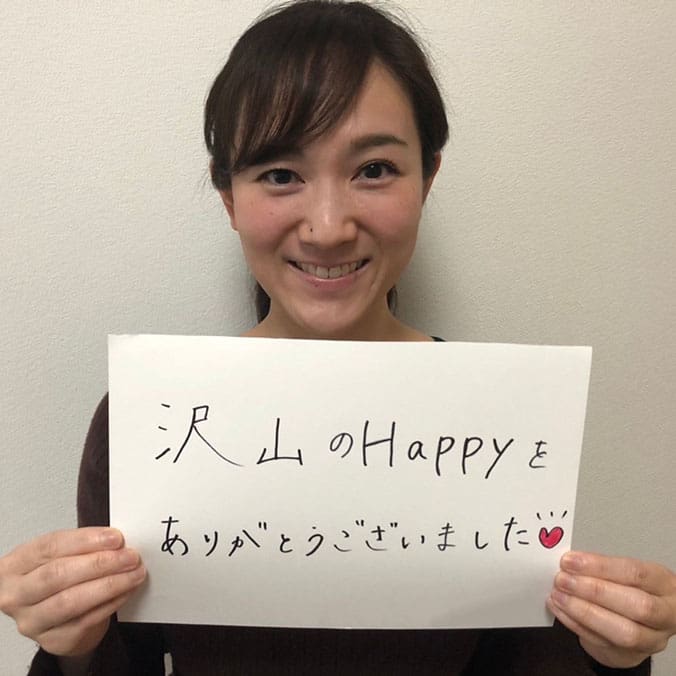 沢山のHappyを
ありがとうございました